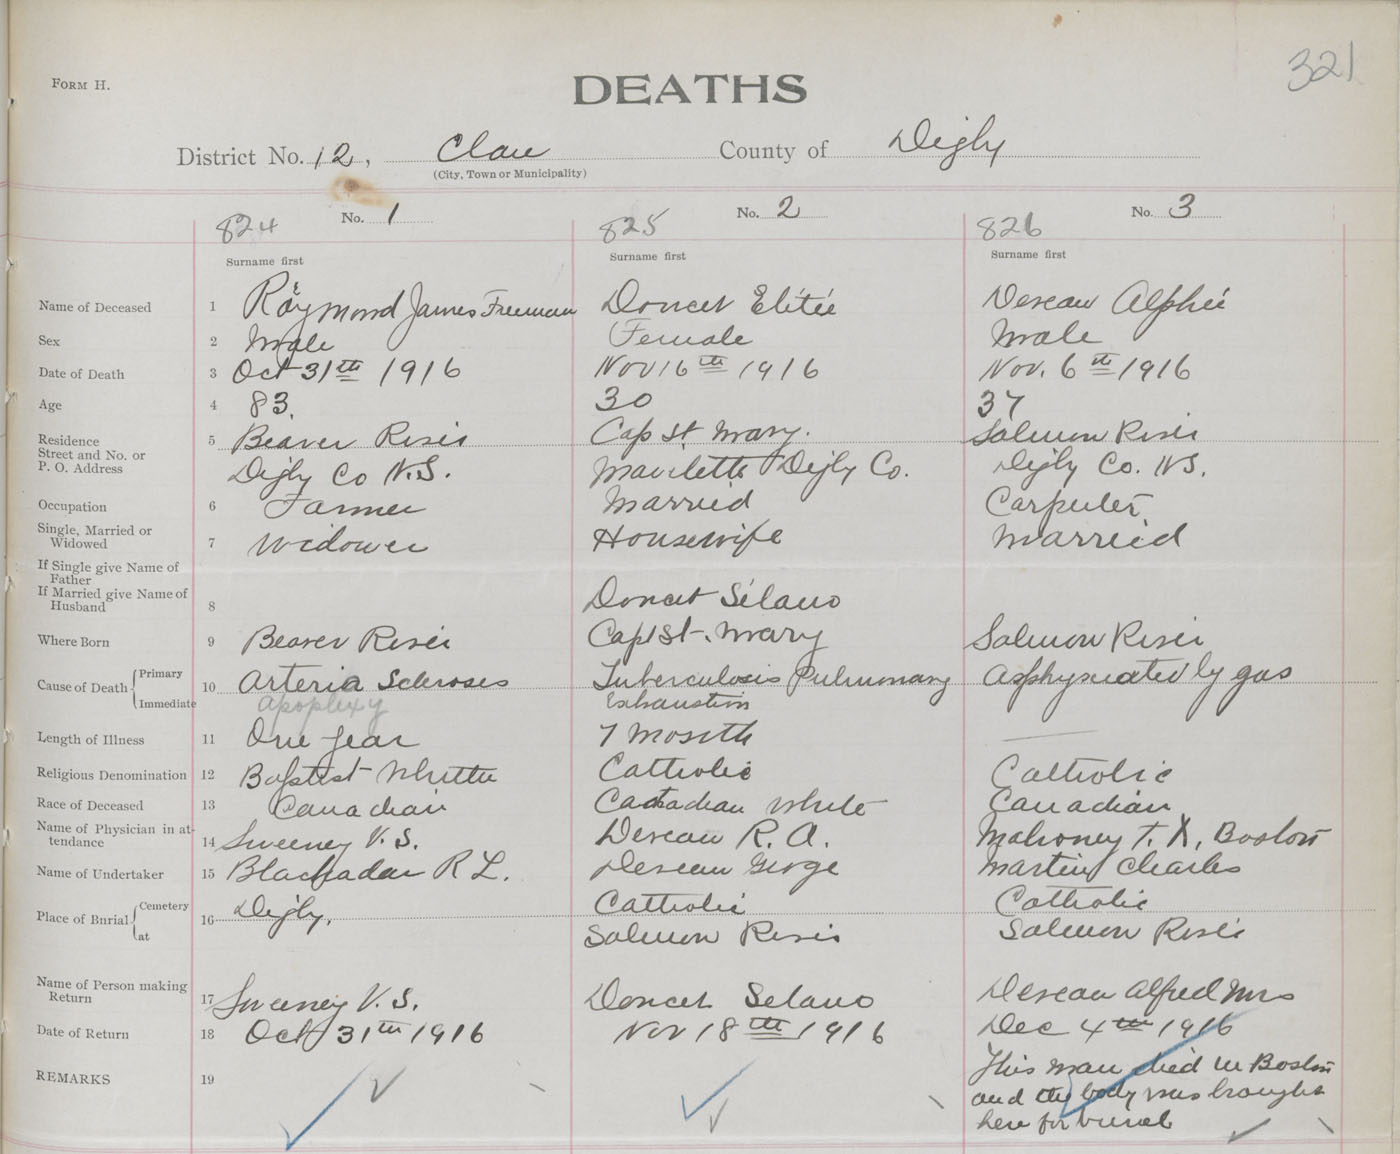 321
FORM H.
DEATHS
District No. 12, Clare County of Digby
(City, Town or Municipality)
824 No. 1 825 No. 2 826 No. 3
Surname first Surname first Surname first
Name of Deceased 1 Raymond James Freeman Doucet Elitée Deveau Alphée
Sex 2 Male Female Male
Date of Death 3 Oct 31th 1916 Nov 16th 1916 Nov. 6th 1916
Age 4 83. 30 37
Residence 5 Beaver River Cap St Mary. Salmon River
Street and No. or
P. O. Address Digby Co N.S. Mavilette Digby Co. Digby Co. N.S.
Occupation 6 Farmer Married Carpenter
Single, Married or
Widowed 7 Widower Housewife Married
If Single give Name of
Father
If Married give Name of
Husband 8 Doucet Sélano
Where Born 9 Beaver River Cap St. Mary Salmon River
Cause of Death Primary 10 Arteria Scleroses Tuberculosis Pulmonary Asphyxiated by gas
Immediate apoplexy Exhaustion
Length of Illness 11 One year 7 Month
Religious Denomination 12 Baptist White Catholic Catholic
Race of Deceased 13 Canadian Canadian White Canadian
Name of Physician in at-
tendance 14 Sweeney V. S. Deveau R. A. Mahoney T. X, Boston
Name of Undertaker 15 Blackadar R L. Deveau George Martin Charles
Place of Burial Cemetery 16 Digby. Catholic Catholic
at Salmon River Salmon River
Name of Person making
Return 17 Sweeney V. S. Doucet Selano Deveau Alfred Mrs
Date of Return 18 Oct 31th 1916 Nov 18th 1916 Dec 4th 1916
REMARKS 19 This man died in Boston
and the body was brought
here for burial